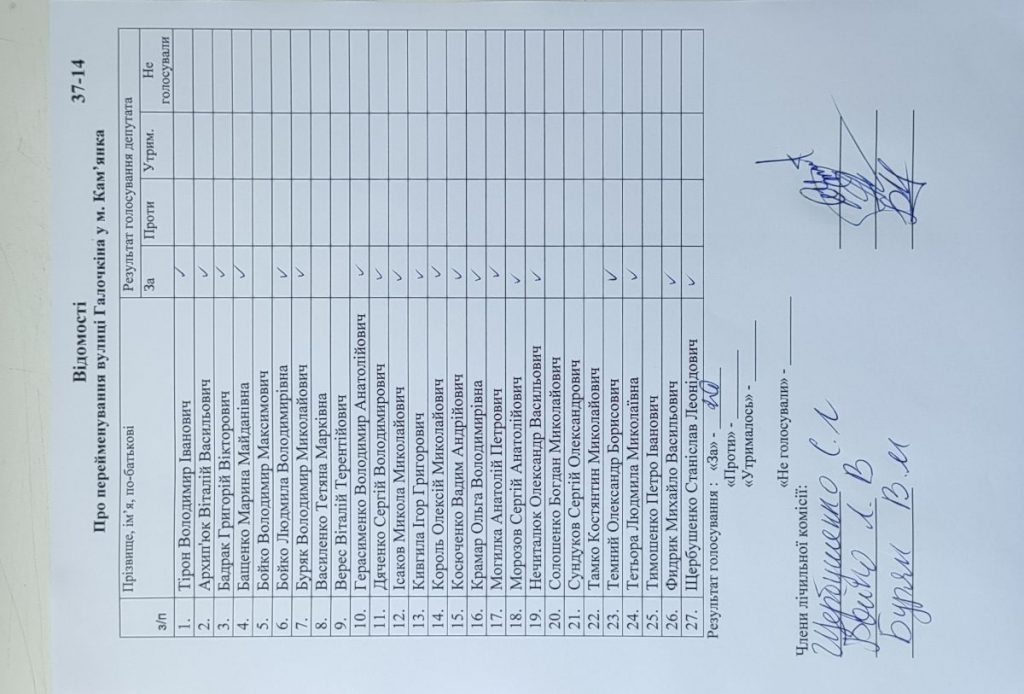 Відомості
Про перейменування вулиці Галочкіна у м. Кам'янка 37-14
з/п Прізвище, ім'я, по-батькові Результат голосування депутата
За Проти Утрим. Не голосували
1. Тірон Володимир Іванович ✓
2. Архип'юк Віталій Васильович ✓
3. Бадрак Григорій Вікторович ✓
4. Бащенко Марина Майданівна ✓
5. Бойко Володимир Максимович
6. Бойко Людмила Володимирівна ✓
7. Буряк Володимир Миколайович ✓
8. Василенко Тетяна Марківна
9. Верес Віталій Терентійович
10. Герасименко Володимир Анатолійович ✓
11. Дяченко Сергій Володимирович ✓
12. Ісаков Микола Миколайович ✓
13. Кивгила Ігор Григорович ✓
14. Король Олексій Миколайович ✓
15. Косюченко Вадим Андрійович ✓
16. Крамар Ольга Володимирівна ✓
17. Могилка Анатолій Петрович ✓
18. Морозов Сергій Анатолійович ✓
19. Нечиталюк Олександр Васильович ✓
20. Солошенко Богдан Миколайович
21. Сундуков Сергій Олександрович
22. Тамко Костянтин Миколайович
23. Темний Олександр Борисович ✓
24. Тетьора Людмила Миколаївна ✓
25. Тимошенко Петро Іванович
26. Фидрик Михайло Васильович ✓
27. Щербушенко Станіслав Леонідович ✓
Результат голосування : «За» - 20
«Проти» -
«Утрималось» -
«Не голосували» -
Члени лічильної комісії:
Щербушенко С. Л
Бойко Л. В
Буряк В. М